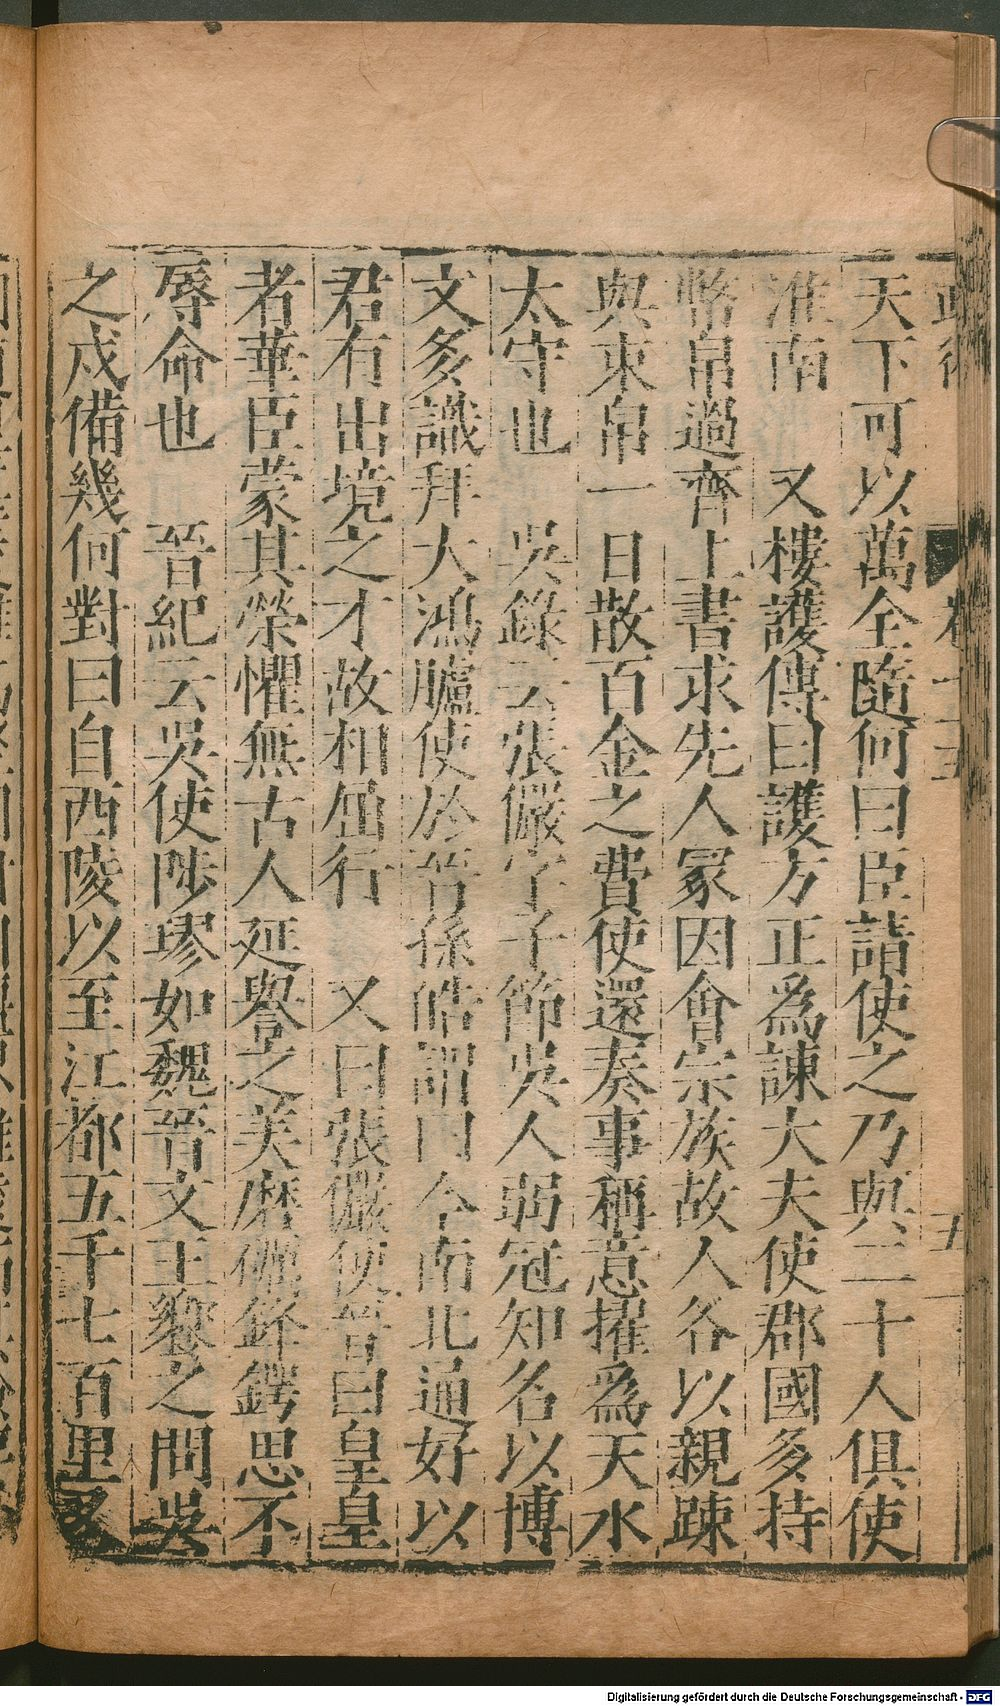 天下可以萬全隨何曰臣請使之乃與二十人俱使
淮南　又樓護傳曰護方正爲諫大夫使郡國多持
幣帛過齊上書求先人冢因會宗族故人各以親踈
與束帛一日散百金之費使還奏事稱意擢爲天水
太守也　吳錄云張儼字子節吳人弱冠知名以博
文多識拜大鴻臚使於晉孫皓謂曰今南北通好以
君有出境之才故相屈行　又曰張儼使晉曰皇皇
者華臣蒙其榮懼無古人延譽之美磨礪鋒鍔思不
辱命也　晉紀云吳使陟璆如魏晉文王饗之問吳
之戍備幾何對曰自西陵以至江都五千七百里又
五
Digitalisierung gefördert durch die Deutsche Forschungsgemeinschaft - DFG